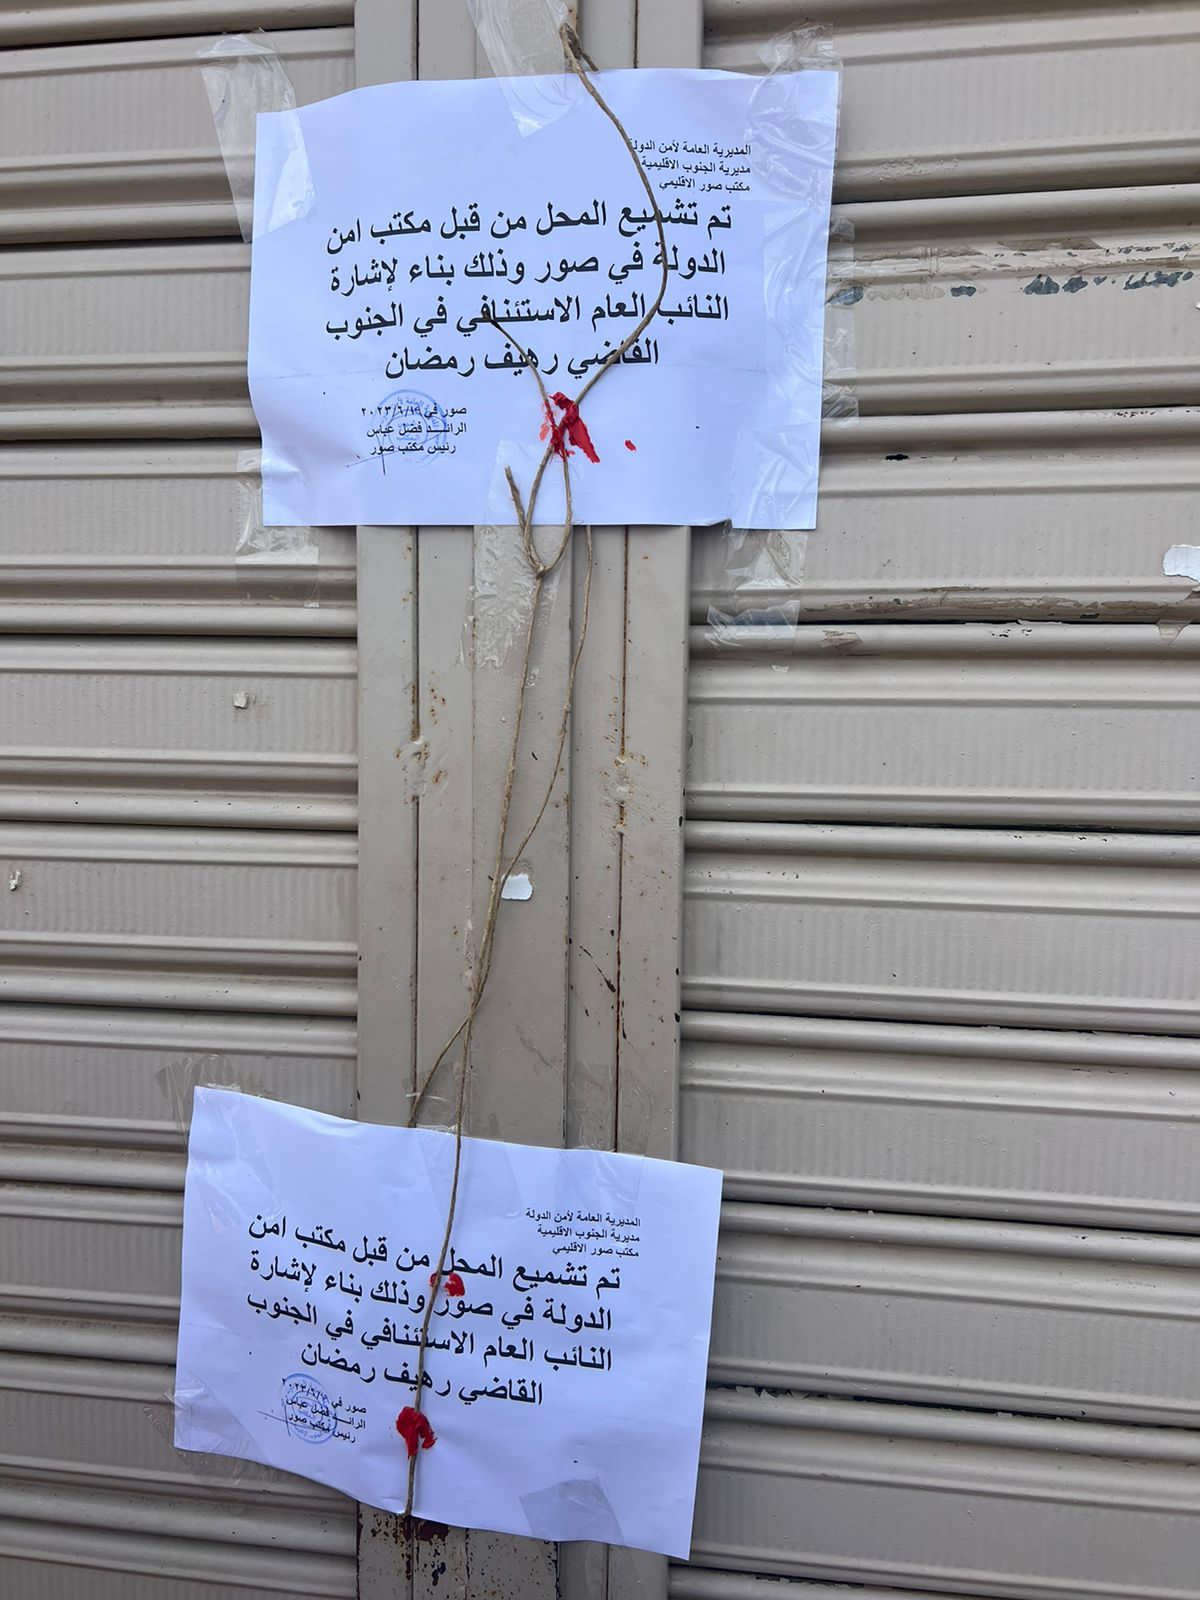 المديرية العامة لأمن الدولة
مديرية الجنوب الاقليمية
مكتب صور الاقليمي
تم تشميع المحل من قبل مكتب امن
الدولة في صور وذلك بناء لإشارة
النائب العام الاستئنافي في الجنوب
القاضي رهيف رمضان
صور في
الرائـــد فضل عباس
رئيس مكتب صور
المديرية العامة لأمن الدولة
مديرية الجنوب الاقليمية
مكتب صور الاقليمي
تم تشميع المحل من قبل مكتب امن
الدولة في صور وذلك بناء لإشارة
النائب العام الاستئنافي في الجنوب
القاضي رهيف رمضان
صور في
الرائـــد فضل عباس
رئيس مكتب صور